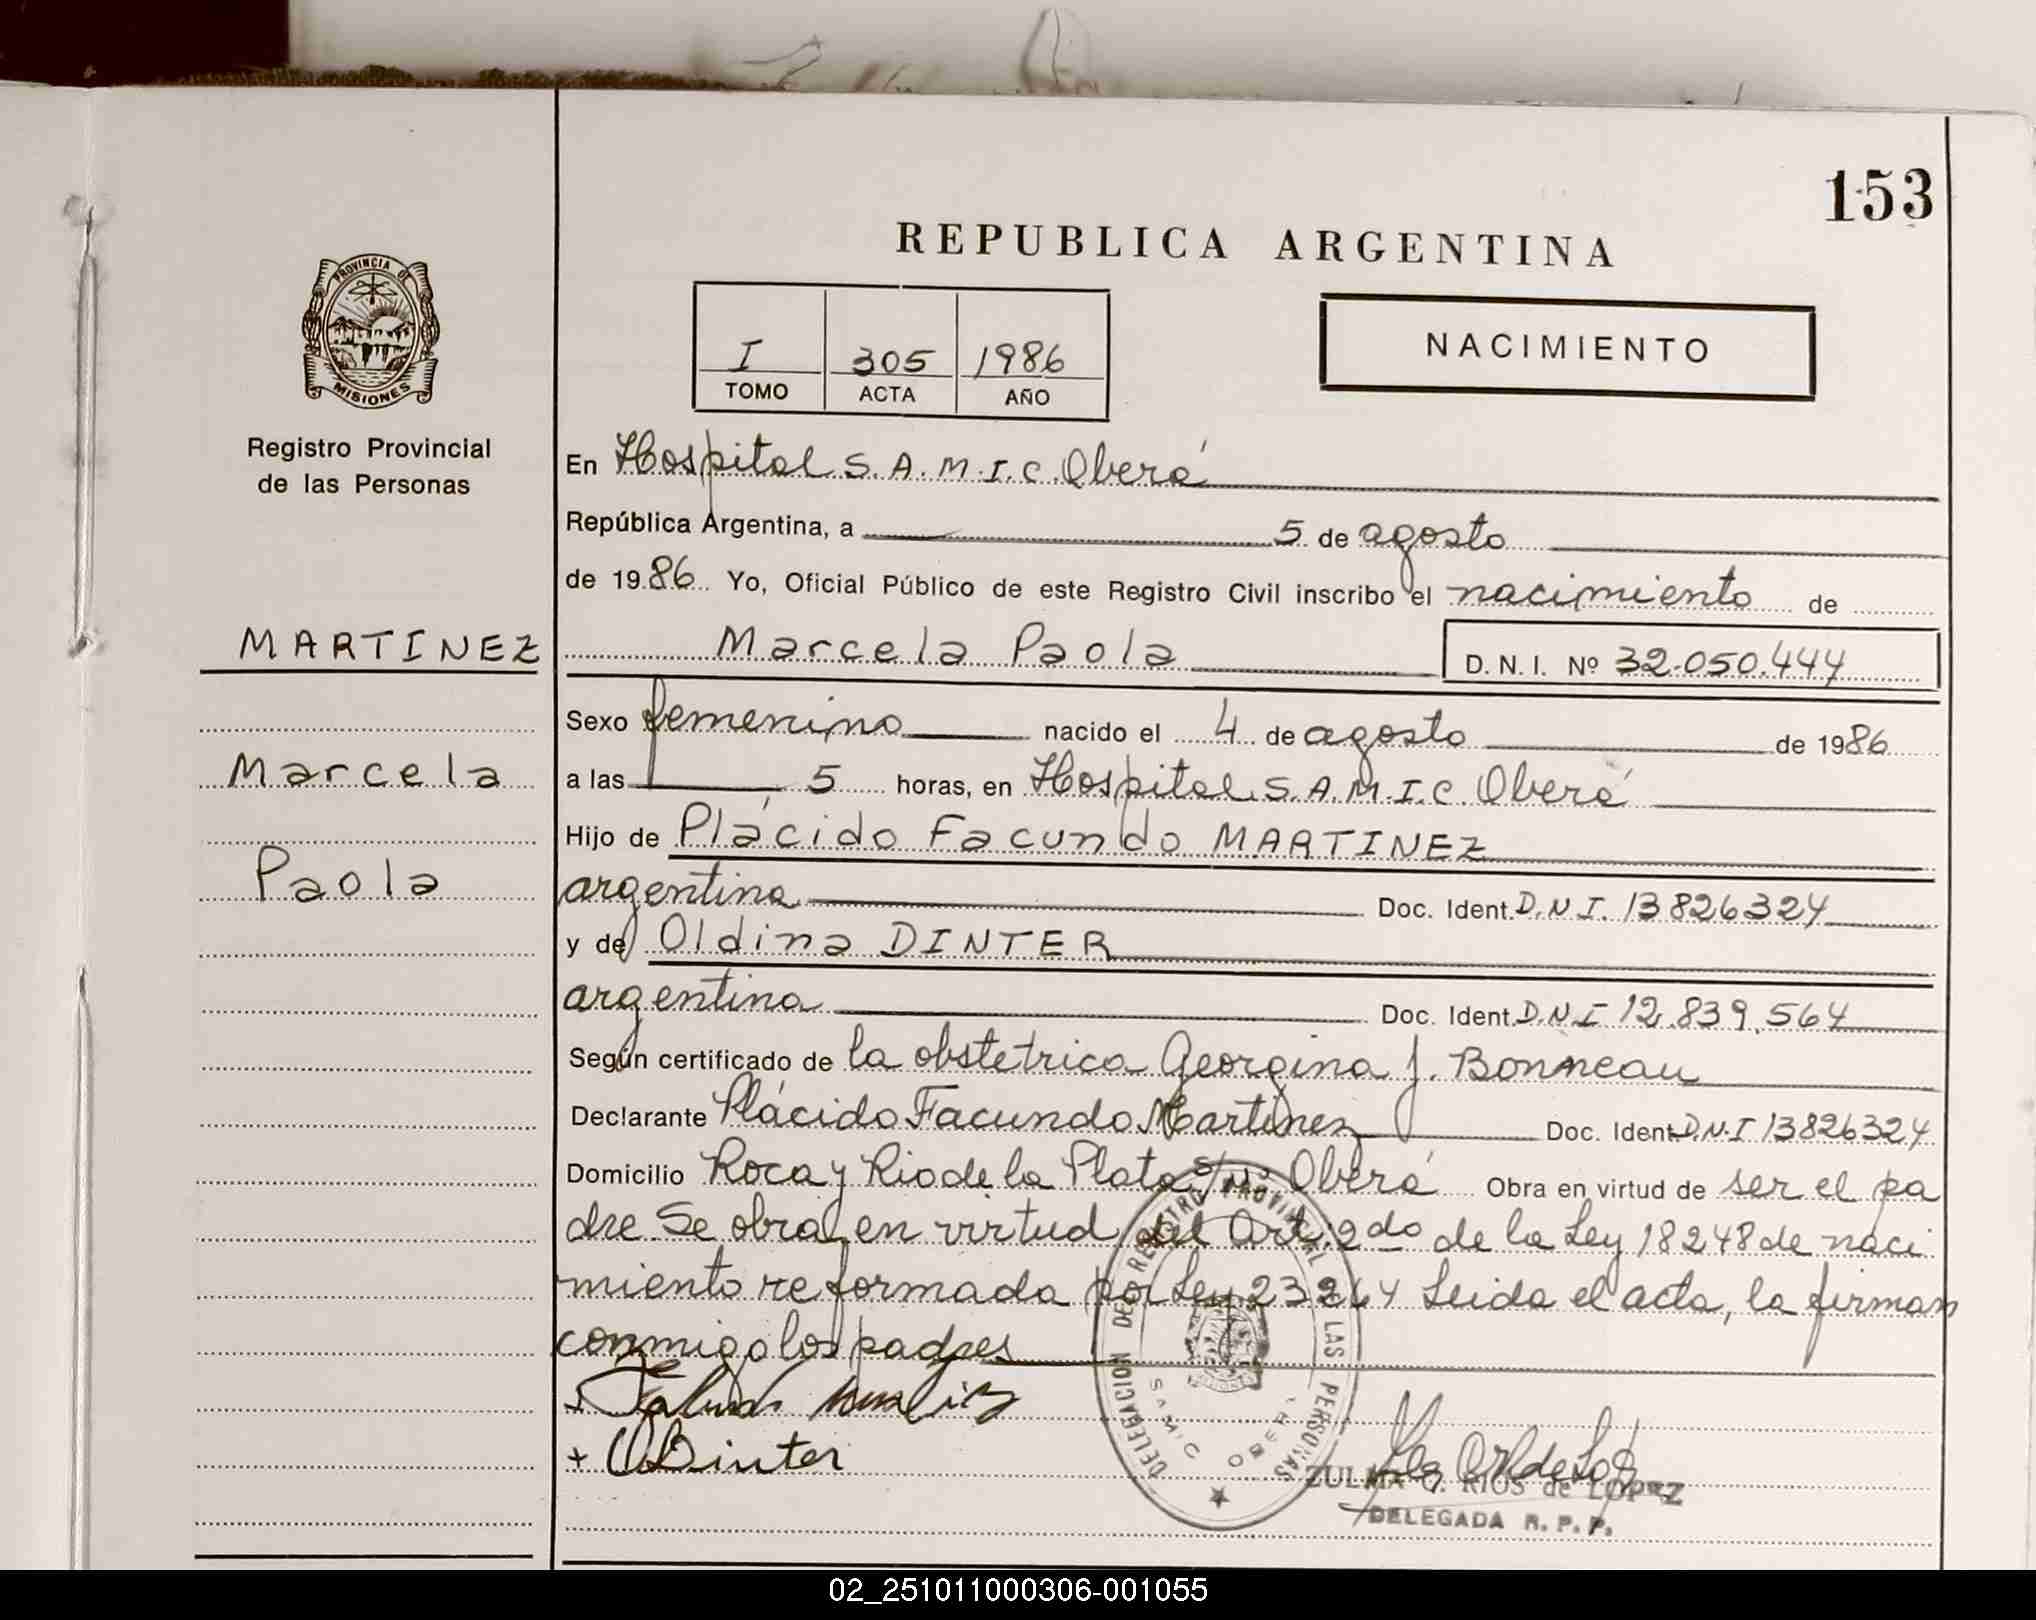 153
REPUBLICA ARGENTINA
PROVINCIA DE
MISIONES
Registro Provincial
de las Personas
I 305 1986
TOMO ACTA AÑO
NACIMIENTO
En Hospital S.A.M.I.C. Oberá
República Argentina, a 5 de agosto
de 1986 Yo, Oficial Público de este Registro Civil inscribo el nacimiento de
MARTINEZ
Marcela Paola D.N.I. Nº 32.050.444
Sexo femenino nacido el 4 de agosto de 1986
Marcela
a las 5 horas, en Hospital S.A.M.I.C. Oberá
Hijo de Plácido Facundo MARTINEZ
Paola
argentina Doc. Ident. D.N.I. 13826324
y de Oldina DINTER
argentina Doc. Ident. D.N.I 12.839.564
Según certificado de la obstetrica Georgina J. Bonneau
Declarante Plácido Facundo Martinez Doc. Ident. D.N.I 13826324
Domicilio Roca y Rio de la Plata s/Nº Oberá Obra en virtud de ser el pa
dre Se obra en virtud del Art. 2do de la Ley 18248 de naci
miento reformada por Ley 23264 Leida el acta, la firman
conmigo los padres
+ O Dinter
DELEGACION DEL REGISTRO PROVINCIAL DE LAS PERSONAS
SAMIC OBERA
ZULMA RIOS de LOPEZ
DELEGADA R.P.P.
02_251011000306-001055